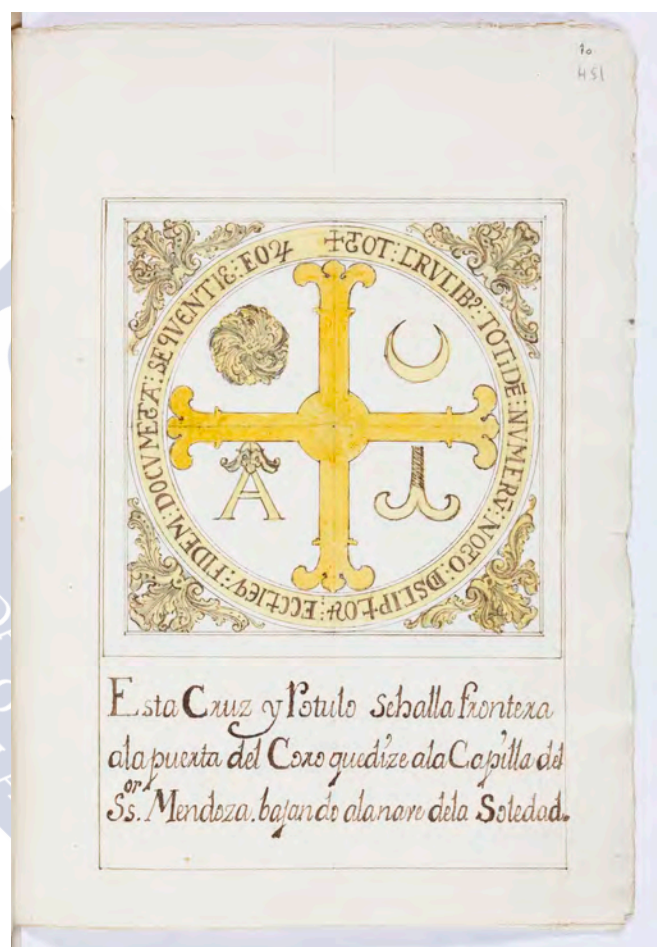 10
451
✠ TOT: CRVCIB9: TOTIDĒ: NVMERV̄: NOTO:
FIDEM: DOCVMETA: SEQVENTIE: EOꝜ
A
Esta Cruz y Rotulo sehalla frontera
alapuerta del Coro quedize ala Capilla del
Ss.or Mendoza. bajando alanave dela Soledad.